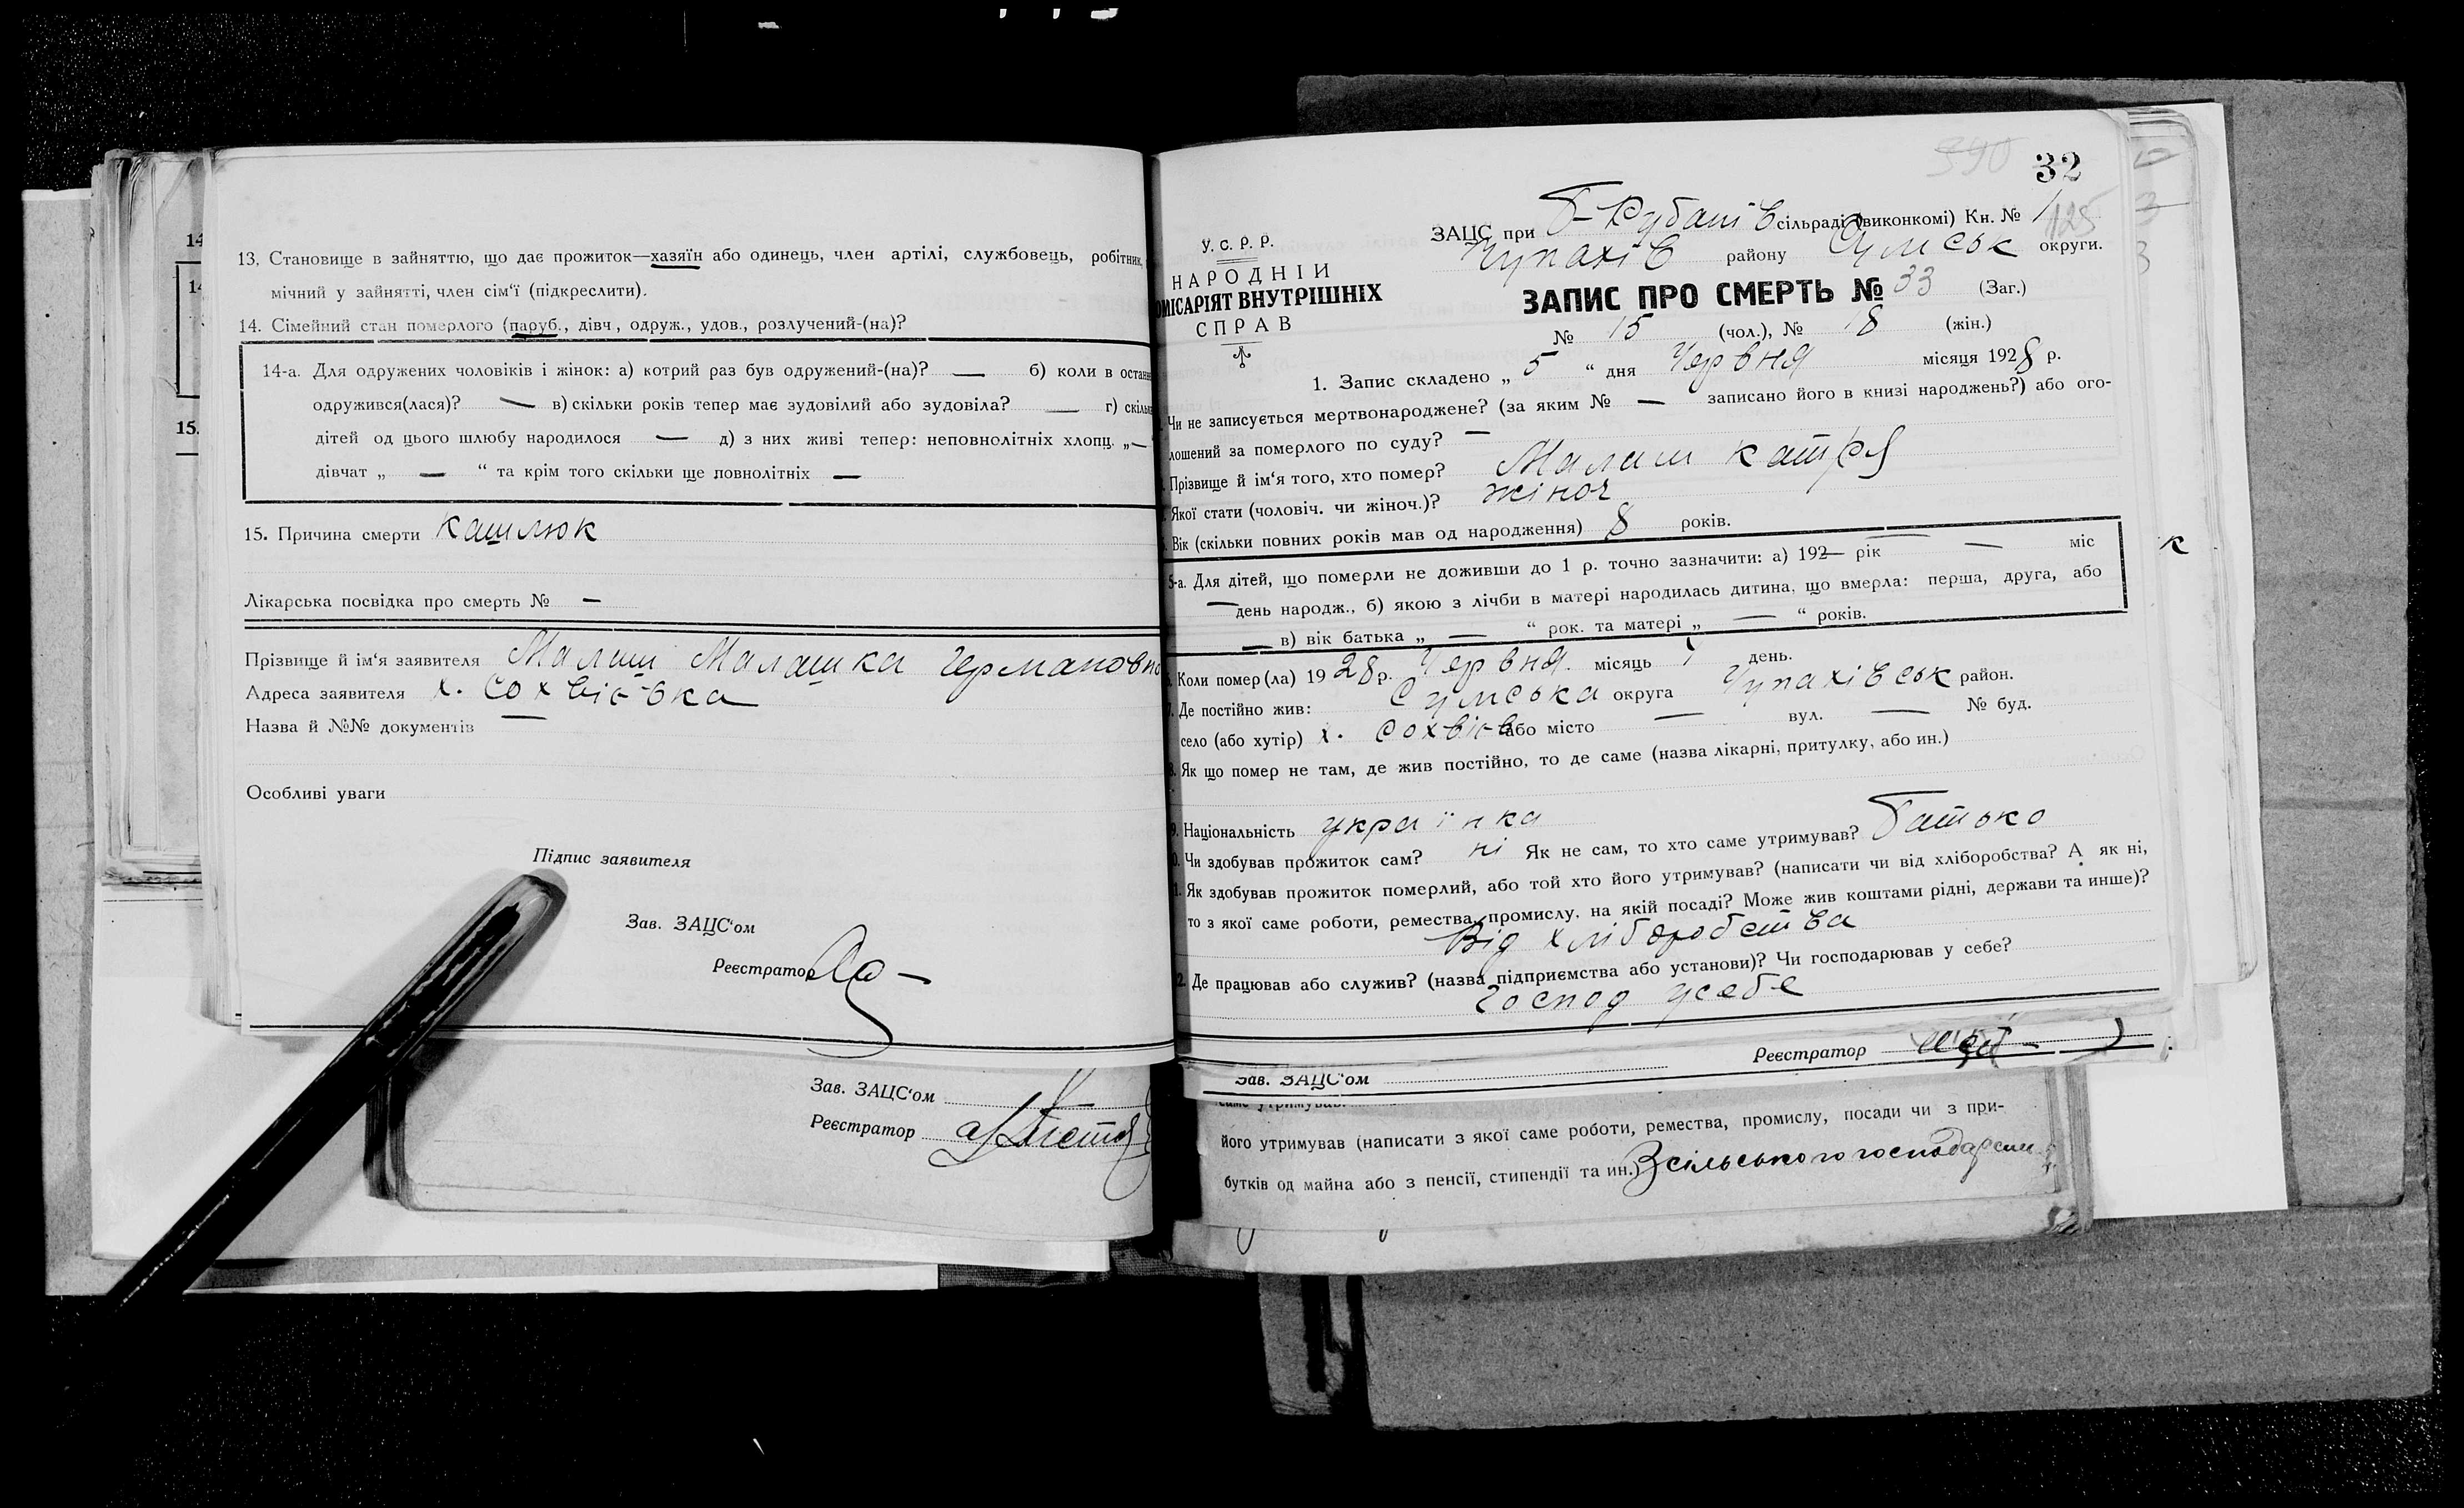 14
13. Становище в зайняттю, що дає прожиток—хазяїн або одинець, член артілі, службовець, робітник,
14
мічний у зайнятті, член сім'ї (підкреслити).
14. Сімейний стан померлого (паруб., дівч, одруж., удов., розлучений-(на)?
14-а. Для одружених чоловіків і жінок: а) котрий раз був одружений-(на)? — б) коли в остан
одружився(лася)? — в) скільки років тепер має зудовілий або зудовіла? — г) скільк
15.
дітей од цього шлюбу народилося — д) з них живі тепер: неповнолітніх хлопц. „—
дівчат „ — “ та крім того скільки ще повнолітніх —
15. Причина смерти кашлюк
Лікарська посвідка про смерть № —
Прізвище й ім'я заявителя Малиш Малашка Германовно
Адреса заявителя х. Сохвіівка
Назва й №№ документів —
Особливі уваги
Підпис заявителя
Зав. ЗАЦС'ом
Реєстратор
Зав. ЗАЦС'ом
Реєстратор
390 32
У. С. Р. Р.
НАРОДНІЙ
ОМІСАРІЯТ ВНУТРІШНІХ
СПРАВ
ЗАЦС при Б-Рубанів сільраді (виконкомі) Кн. № 1
125
Чупахів району Сумськ округи.
ЗАПИС ПРО СМЕРТЬ № 33 (Заг.)
№ 15 (чол.), № 18 (жін.)
1. Запис складено „ 5 “ дня Червня місяця 1928 р.
Чи не записується мертвонароджене? (за яким № — записано його в книзі народжень?) або ого-
лошений за померлого по суду? —
Прізвище й ім'я того, хто помер? Малиш Катря
Якої стати (чоловіч. чи жіноч.)? жіноч
Вік (скільки повних років мав од народження) 8 років.
5-а. Для дітей, що померли не доживши до 1 р. точно зазначити: а) 192— рік — міс
— день народж., б) якою з лічби в матері народилась дитина, що вмерла: перша, друга, або
— в) вік батька „ — “ рок. та матері „ — “ років.
Коли помер (ла) 1928 р. Червня місяць день.
7. Де постійно жив: Сумська округа Чупахівськ район.
село (або хутір) х. Сохвіїв або місто — вул. — № буд.
8. Як що помер не там, де жив постійно, то де саме (назва лікарні, притулку, або ин.)
9. Національність українка
0. Чи здобував прожиток сам? ні Як не сам, то хто саме утримував? Батько
1. Як здобував прожиток померлий, або той хто його утримував? (написати чи від хліборобства? А як ні,
то з якої саме роботи, ремества, промислу, на якій посаді? Може жив коштами рідні, держави та инше)?
Від хліборобства
2. Де працював або служив? (назва підприємства або установи)? Чи господарював у себе?
господ усебе
Реєстратор
Зав. ЗАЦС'ом
саме утримував.
його утримував (написати з якої саме роботи, ремества, промислу, посади чи з при-
бутків од майна або з пенсії, стипендії та ин.) З сільського господарст
к